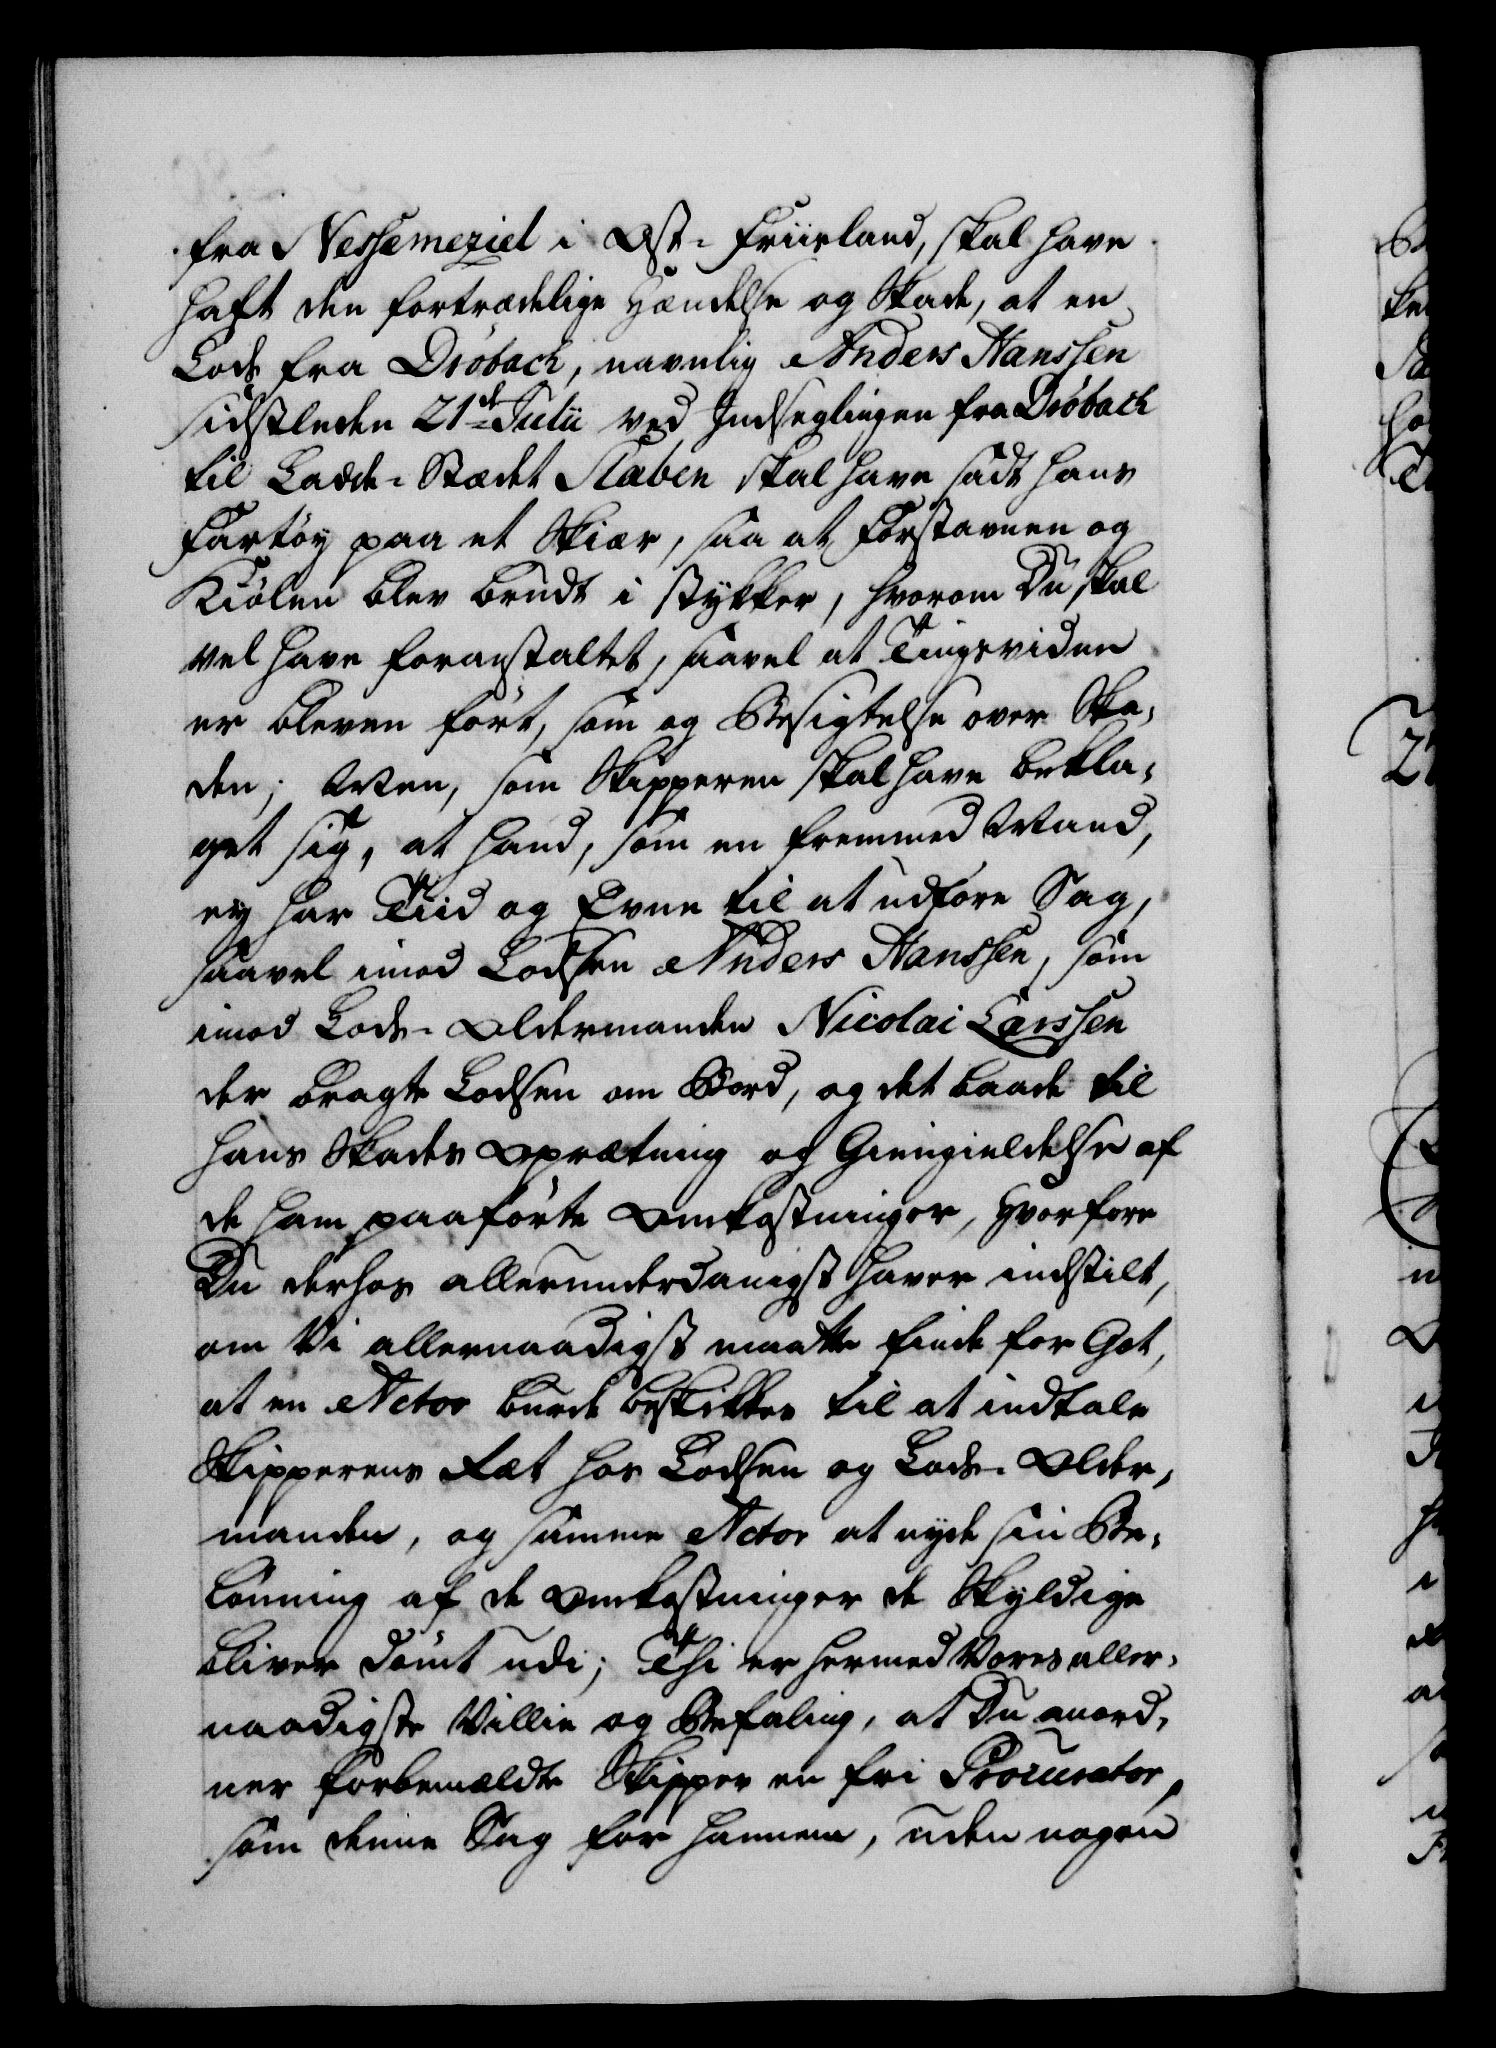 fra Nessemeziel i Øst-Friisland, skal have
haft den fortrædelige Hændelse og Skade, at en
Lods fra Dröbach, navnlig Anders Hanssen
sidstleden 21de Julii ved Indseglingen fra Dröbach
til Ladde-Stædet Slæben skal have sadt hans
Fartöy paa et Skiær, saa at Forstavnen og
Kiölen blev brudt i stykker, hvorom Du skal
vel have foranstaltet, saavel at Tingsvidne
er bleven fört, som og Besigtelse over Ska-
den; Men, som Skipperen skal have bekla-
get sig, at hand, som en fremmed Mand,
ey har Tiid og Evne til at udföre Sag,
saavel imod Lodsen Anders Hanssen, som
imod Lods-Oldermanden Nicolai Larssen
der bragte Lodsen om Bord, og det baade til
hans Skades Oprætning og Giengieldelse af
de ham paaförte Omkostninger, Hvorfore
Du derhos allerunderdanigst haver indstilt,
om Vi allernaadigst maatte finde for Got,
at en Actor burde beskikkes til at indtale
Skipperens Ræt hos Lodsen og Lods-Older-
manden, og samme Actor at nyde sin Be-
lönning af de Omkostninger de Skyldige
bliver dömt udi; Thi er hermed Vores aller-
naadigste Villie og Befaling, at Du anord-
ner forbemældte Skipper en fri Procurator,
som denne Sag for hannem, uden nogen